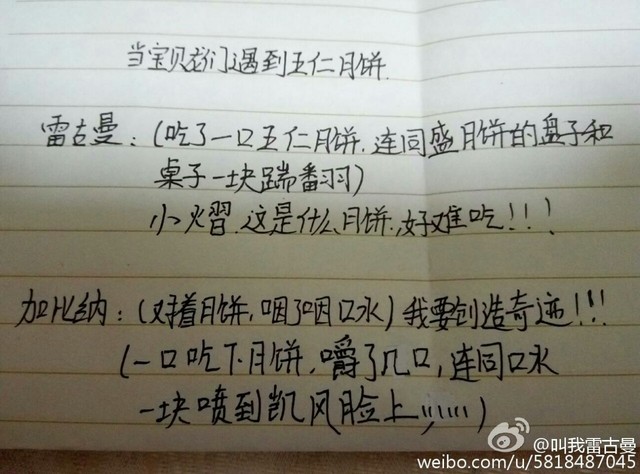 当宝贝龙们遇到五仁月饼.
雷古曼：(吃了一口五仁月饼.连同盛月饼的盘子和
桌子一块踹番羽)
小火習.这是什么月饼.好难吃!!!
加比纳：(对着月饼,咽了咽口水)我要创造奇迹!!!
(一口吃下月饼,嚼了几口,连同口水
一块喷到凯风脸上,,,,,,)
@叫我雷古曼
weibo.com/u/5818487045